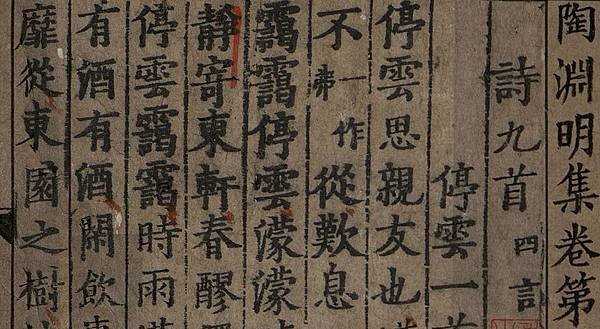 陶淵明集卷第
詩九首 四言
停雲一首
停雲思親友也
不一作弗從歎息
靄靄停雲濛濛
靜寄東軒春醪
停雲靄靄時雨
有酒有酒閑飲
靡從東園之樹